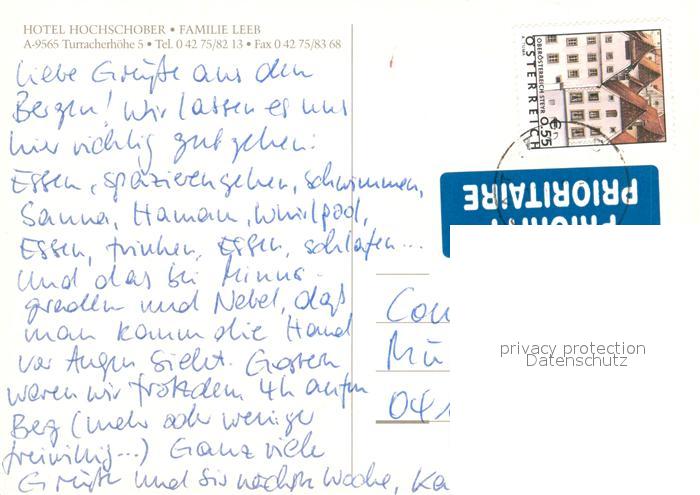 HOTEL HOCHSCHOBER • FAMILIE LEEB
A-9565 Turracherhöhe 5 • Tel. 0 42 75/82 13 • Fax 0 42 75/83 68
Liebe Grüße aus den
Bergen! Wir lassen es uns
hier richtig gut gehen:
Essen, spazierengehen, schwimmen,
Sauna, Hamam, Whirlpool,
Essen, trinken, Essen, schlafen...
Und das bei Minus-
graden und Nebel, daß
man kaum die Hand
vor Augen sieht. Gestern
waren wir trotzdem 4h auf'm
Berg (mehr oder weniger
freiwillig...) Ganz viele
Grüße und bis nächste Woche, Ka
OBERÖSTERREICH STEYR
€ 0,55
ÖSTERREICH
PRIORITY
PRIORITAIRE
Con
Mü
041
privacy protection
Datenschutz